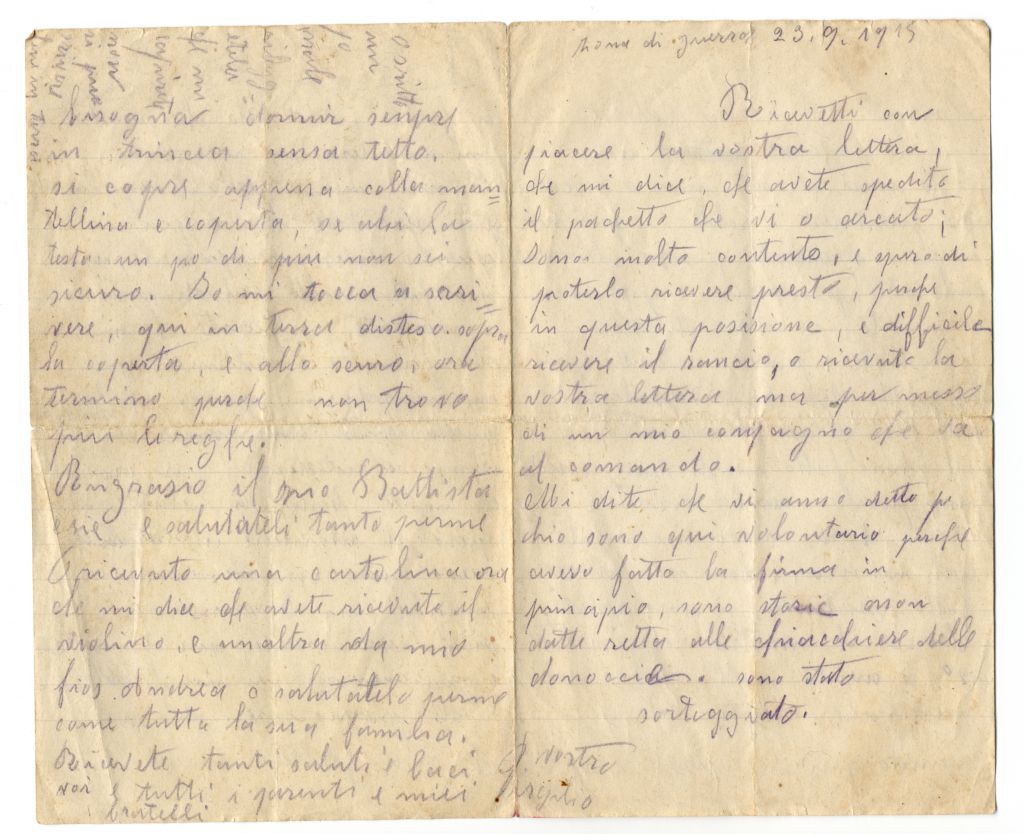 zona di guerra 23.9.1915
Ricevetti con
piacere la vostra lettera,
che mi dice, che avete spedito
il pachetto che vi o arcato;
Sono molto contento, e spero di
poterlo ricevere presto, perche
in questa posisione, e difficile
ricevere il rancio, o ricevuto la
vostra lettera ma per messo
di un mio conpagno che va
al comando.
Mi dite che vi anno detto
chio sono qui volontario perche
avevo fatto la firma in
principio, sono storie non
datte retta alle chiacchiere delle
donoccie. sono stato
sorteggiato.
bisogna dormir senpre
in trincea sensa tetto,
si copre appena colla man=
tellina e coperta, se alsi la
testa un po di piu non sei
sicuro. Io mi tocca a scri=
vere, qui in terra disteso sopra
la coperta, e allo scuro, ora
termino perche non trovo
piu le reghe.
Ringrasio il Battista
e salutateli tanto perme
O ricevuto una cartolina ora
che mi dice che avete ricevuto il
violino, e unaltra da mio
Andrea o salutatelo perme
come tutta la sua familia.
Ricevete tanti saluti e baci
voi e tutti i parenti e miei
fratelli
Il vostro
O scritto